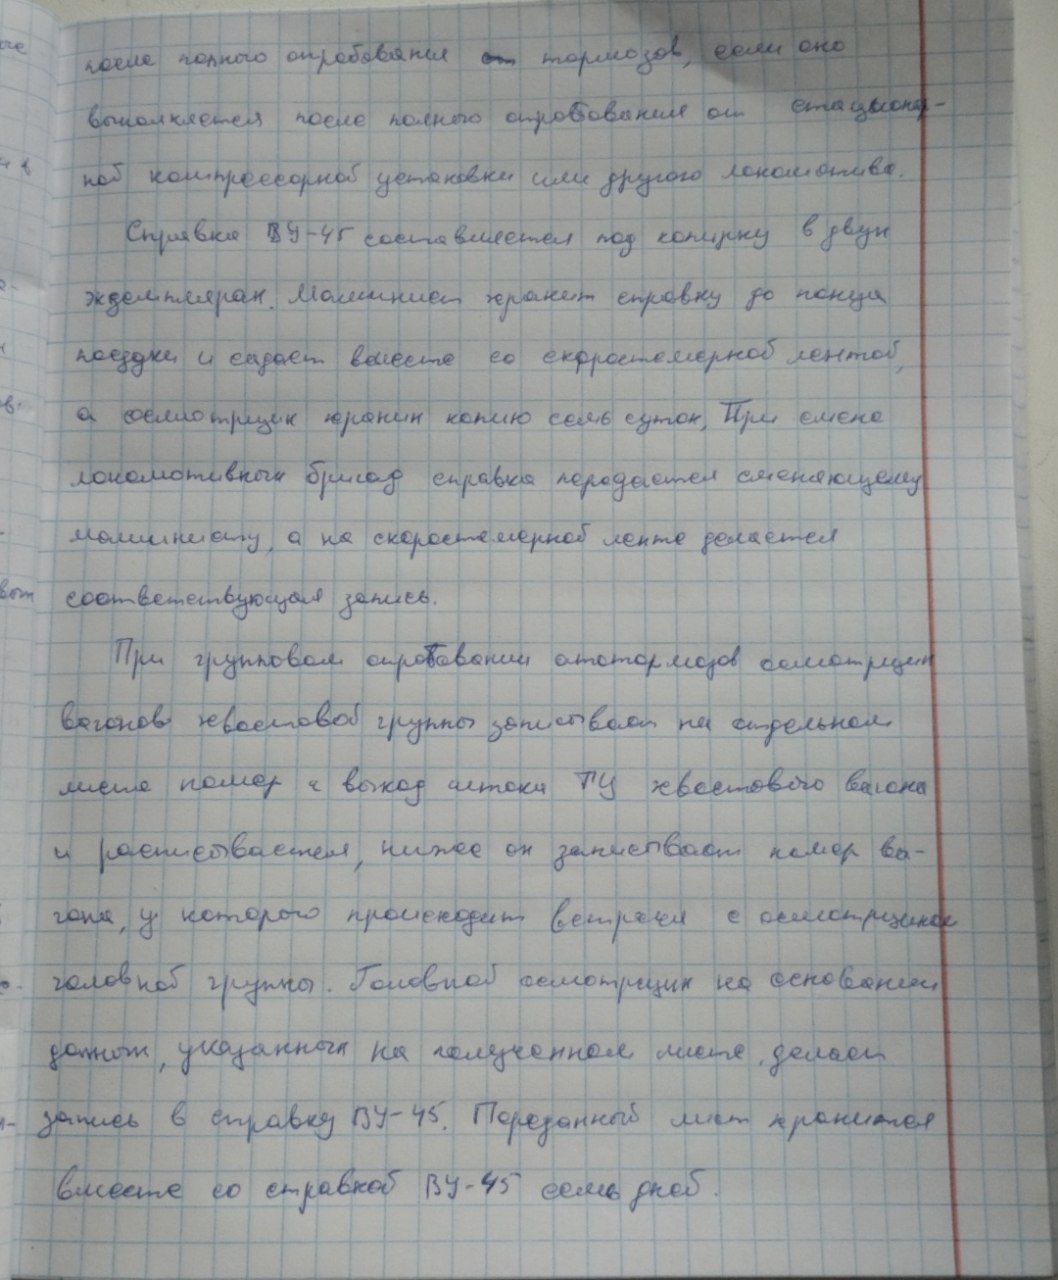 после полного опробования тормозов, если оно
выполняется после полного опробования от стационар-
ной компрессорной установки или другого локомотива.
Справка ВУ-45 составляется под копирку в двух
экземплярах. Машинист хранит справку до конца
поездки и сдает вместе со скоростемерной лентой,
а осмотрщик хранит копию семь суток, При смене
локомотивных бригад справка передается сменяющему
машинисту, а на скоростемерной ленте делается
соответствующая запись.
При групповом опробовании автотормозов осмотрщик
вагонов хвостовой группы записывает на отдельном
листе номер и выход штока ТЦ хвостового вагона
и расписывается, ниже он записывает номер ва-
гона, у которого происходит встреча с осмотрщиком
головной группы. Головной осмотрщик на основании
данных, указанных на полученном листе, делает
запись в справку ВУ-45. Переданный лист хранится
вместе со справкой ВУ-45 семь дней.